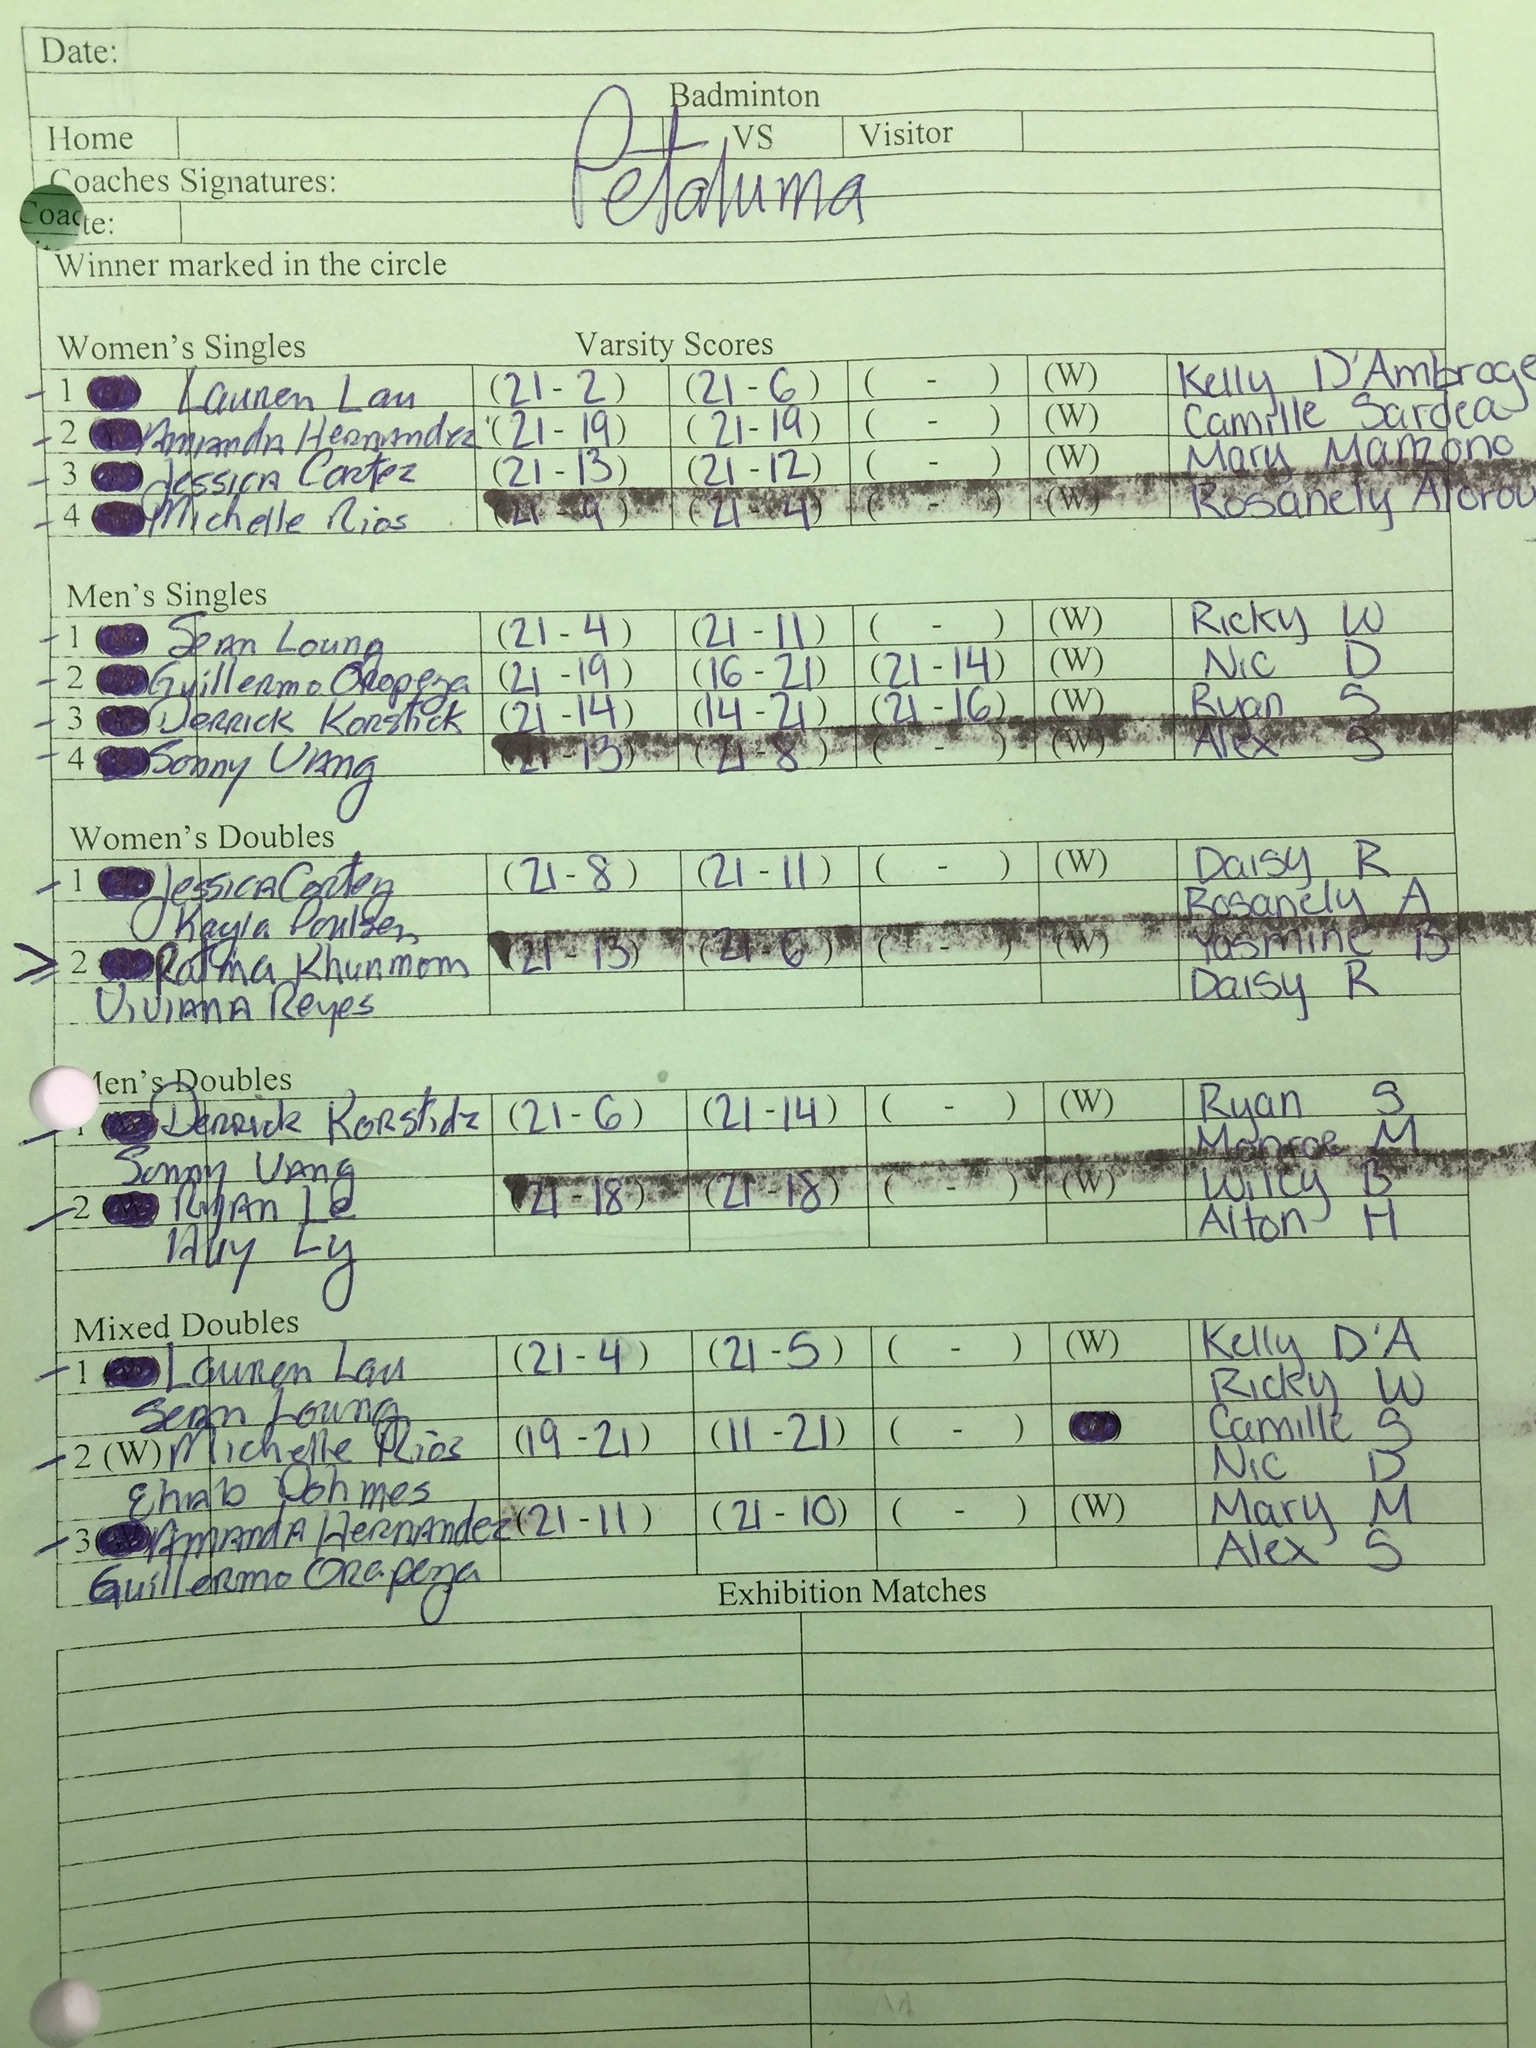 Date:
Badminton
Home VS Visitor
Petaluma
Coaches Signatures:
Coac te:
Winner marked in the circle
Women's Singles Varsity Scores
1 Lauren Lau (21-2) (21-6) ( - ) (W) Kelly D'Ambroge
2 Amanda Hernandez (21-19) (21-19) ( - ) (W) Camille Sardea
3 Jessica Cortez (21-13) (21-12) ( - ) (W) Mary Manzono
4 Michelle Rios (21-9) (21-4) ( - ) (W) Rosanely
Men's Singles
1 Sean Loung (21-4) (21-11) ( - ) (W) Ricky W
2 Guillermo Oropeza (21-19) (16-21) (21-14) (W) Nic D
3 Derrick Korstick (21-14) (14-21) (21-16) (W) Ryan S
4 Sonny Vang (21-13) (21-8) ( - ) (W) Alex S
Women's Doubles
1 Jessica Cortez (21-8) (21-11) ( - ) (W) Daisy R
Kayla Poulsen Rosanely A
2 Ratma Khunmom (21-13) (21-6) ( - ) (W) Yasmine B
Viviana Reyes Daisy R
Men's Doubles
1 Derrick Korstidz (21-6) (21-14) ( - ) (W) Ryan S
Sonny Vang Monroe M
2 Ryan Le (21-18) (21-18) ( - ) (W) Wiley B
Ly Alton H
Mixed Doubles
1 Lauren Lau (21-4) (21-5) ( - ) (W) Kelly D'A
Sean Loung Ricky W
2 (W) Michelle Rios (19-21) (11-21) ( - ) Camille S
Ehab Dohmes Nic D
3 Amanda Hernandez (21-11) (21-10) ( - ) (W) Mary M
Guillermo Orapeza Alex S
Exhibition Matches